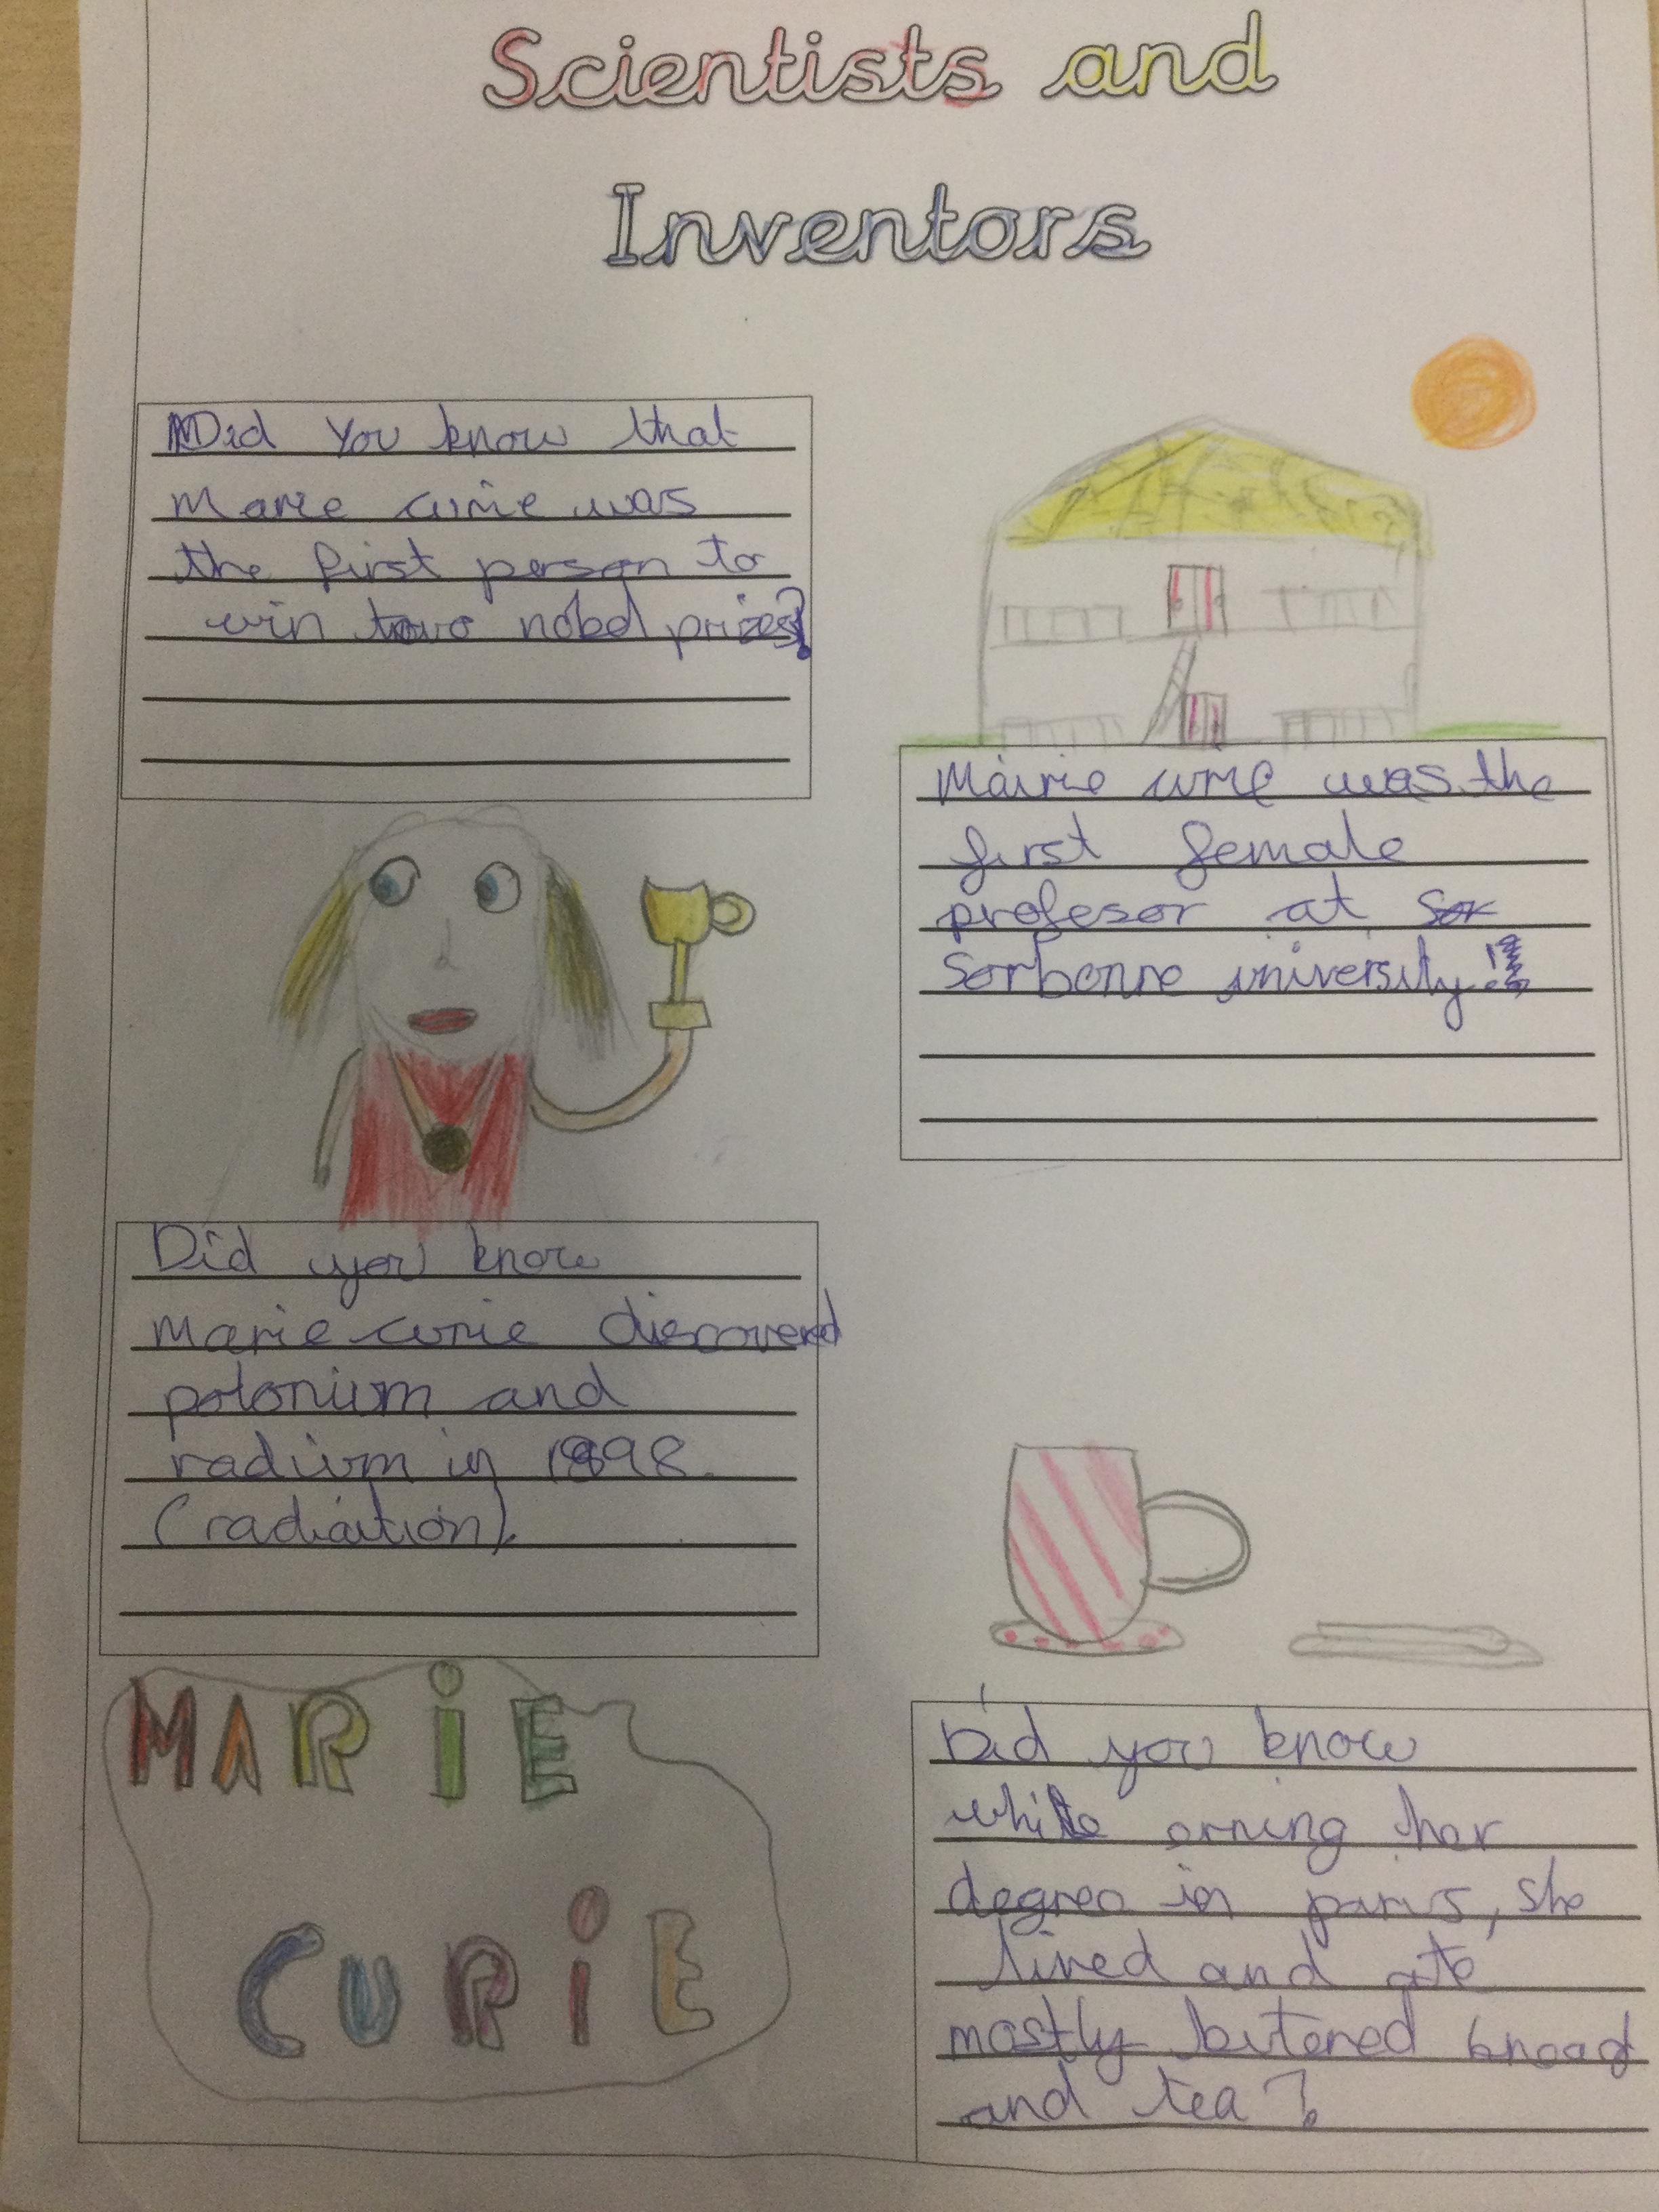 Scientists and
Inventors
Did You know that
Marie curie was
the first person to
win two nobel prizes?
Mairie curie was the
first female
profesor at Sor
Sorbonne university!!
Did you know
marie curie discovered
polonium and
radium in 1898.
(radiation).
MARiE
CURiE
Did you know
while orning her
degree in paris, she
lived and ate
mostly butered bread
and tea?